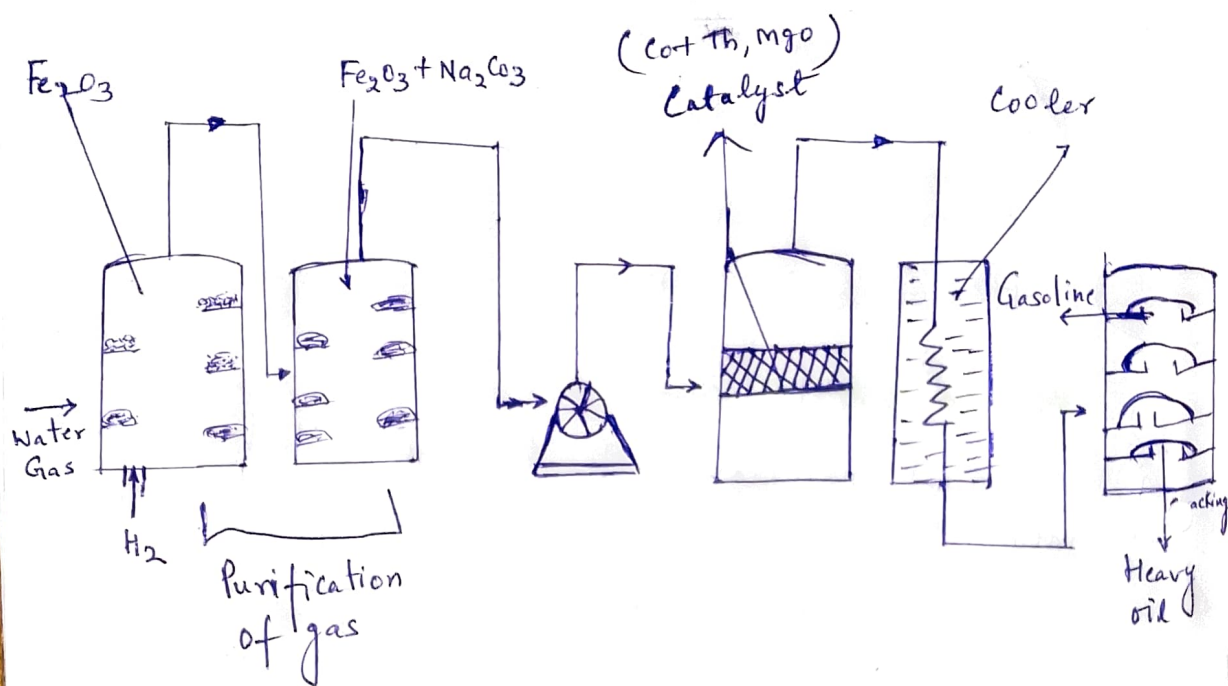 Fe₂O₃
Fe₂O₃ + Na₂Co₃
(Co+ Th, Mgo)
Catalyst
Cooler
Gasoline
Water
Gas
H₂
Purification
of gas
Heavy
oil